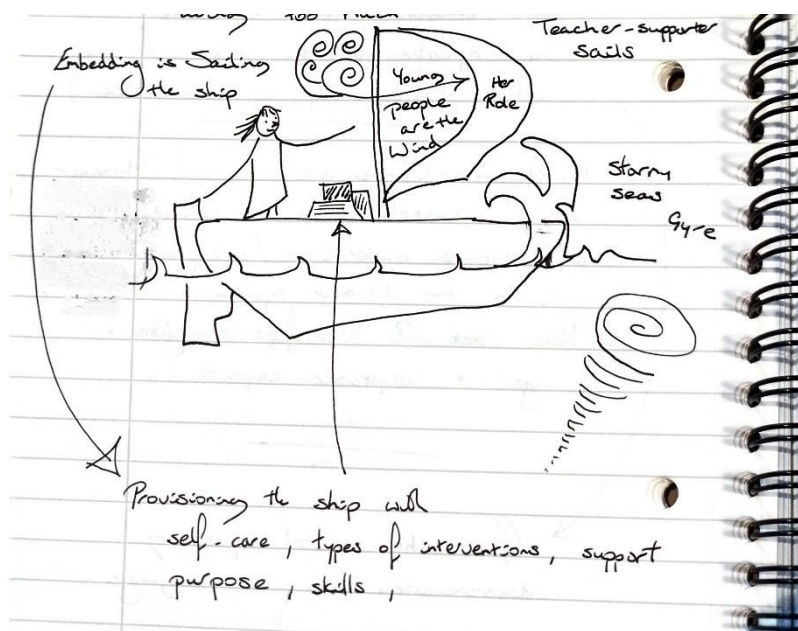 too much
Teacher-supporter
Sails
Embedding is Sailing
the ship
Young
people
are the
Wind
Her
Role
seas
Gyre
Provisioning the ship with
self-care, types of interventions, support
purpose, skills,